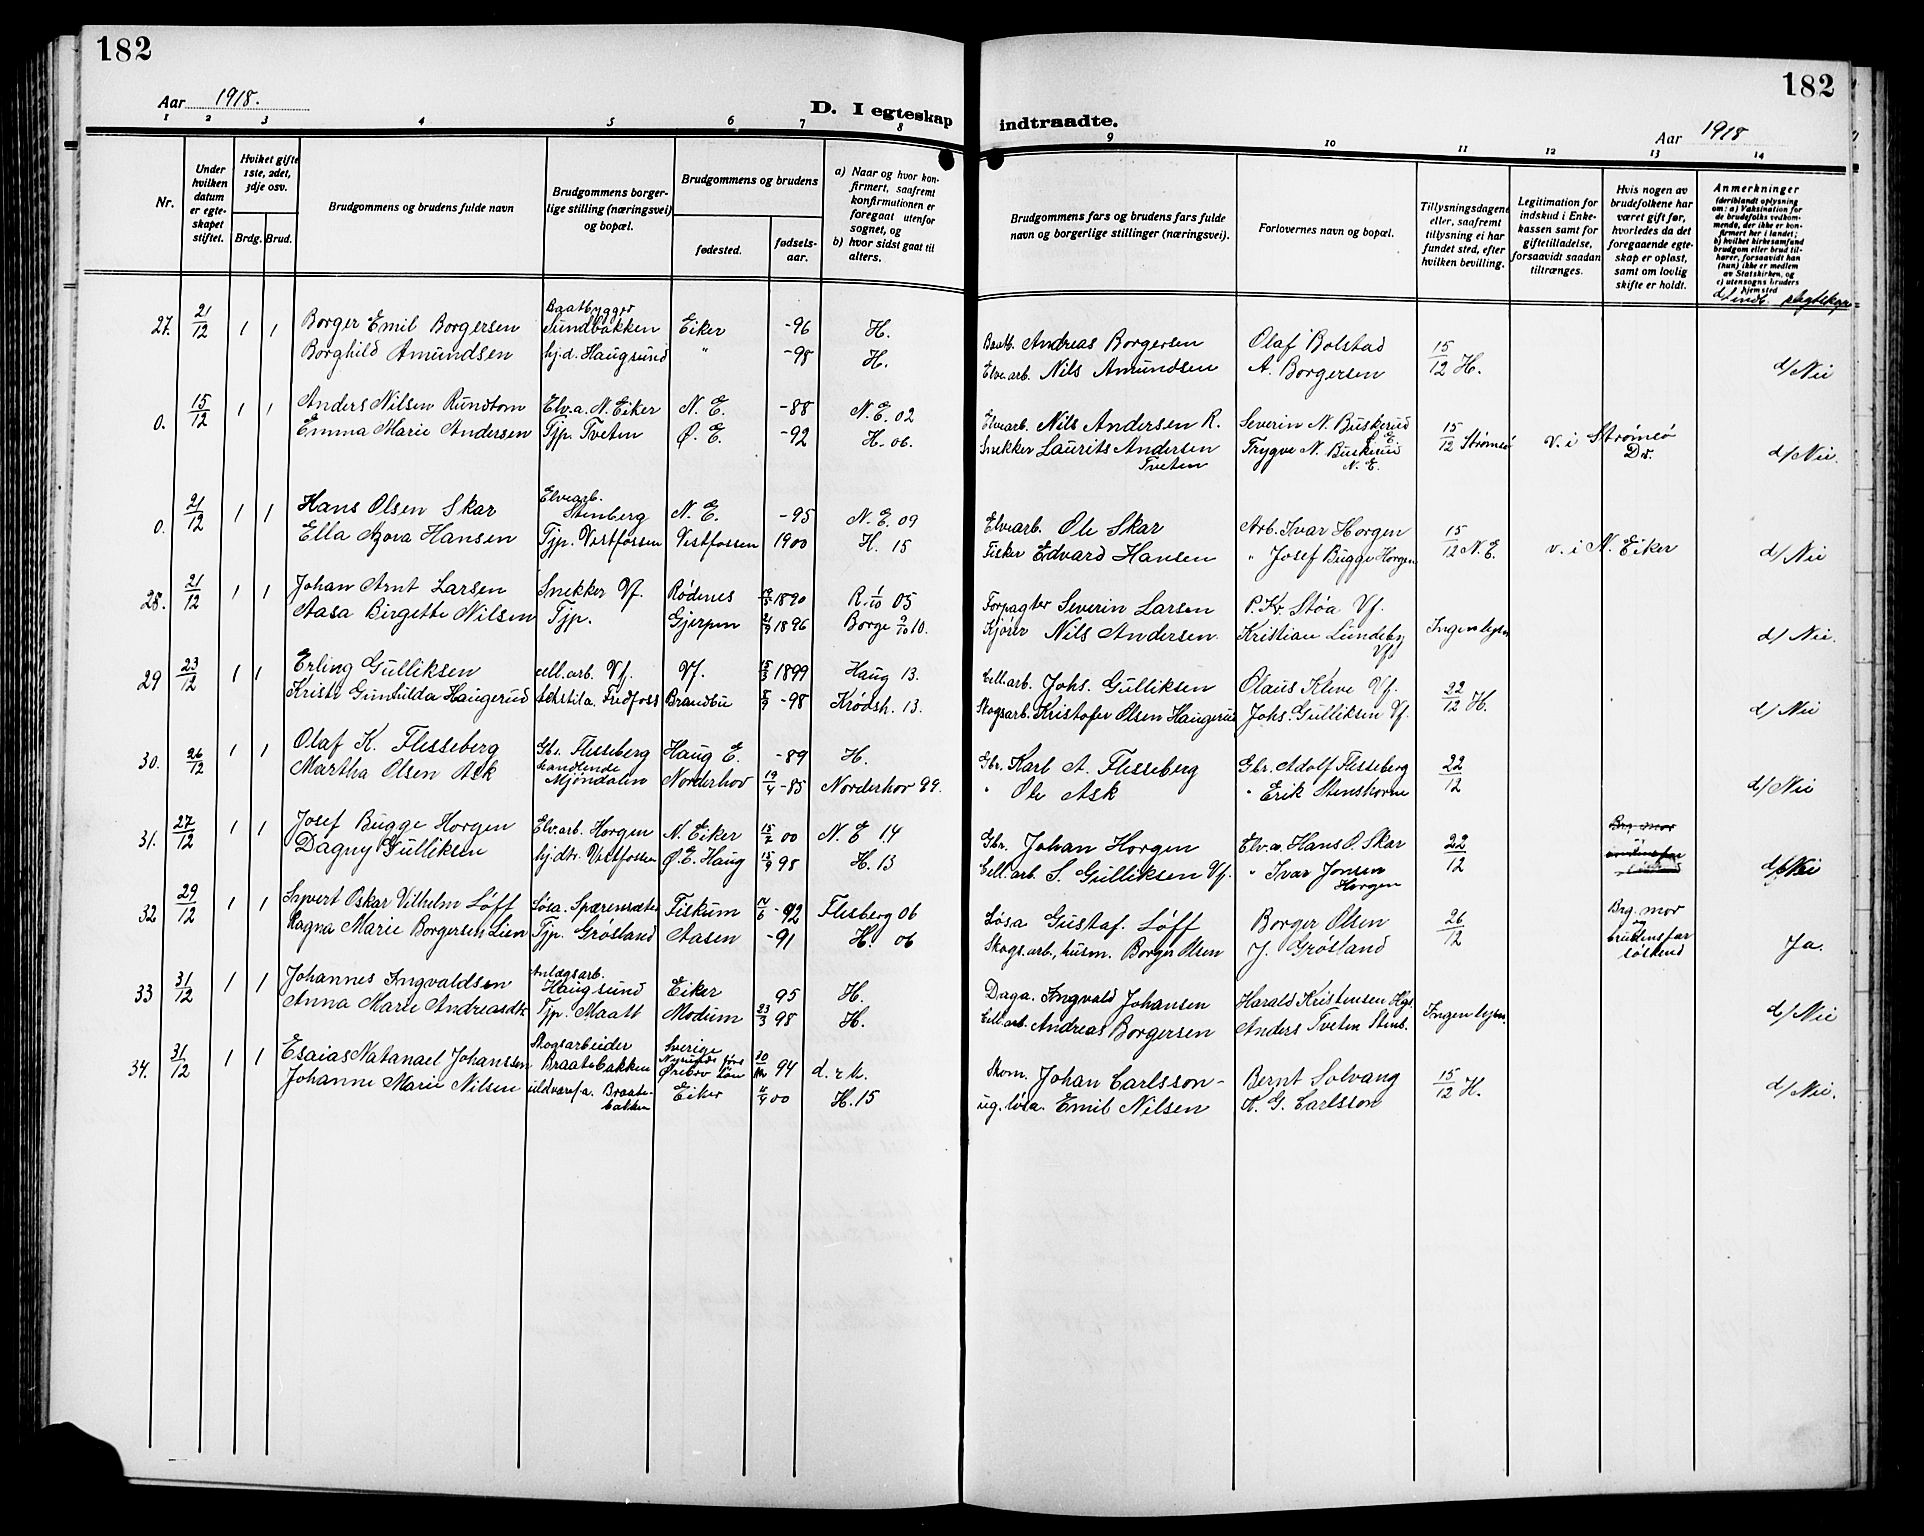 182
182
Aar 1918.
D. I egteskap indtraadte.
Aar 1918
1 2 3 4 5 6 7 8 9 10 11 12 13 14
Nr.
Under hvilken datum er egteskapet stiftet.
Hvilket gifte 1ste, 2det, 3dje osv.
Brdg. Brud.
Brudgommens og brudens fulde navn
Brudgommens borgerlige stilling (næringsvei) og bopæl.
Brudgommens og brudens
fødested.
fødselsaar.
a) Naar og hvor konfirmert, saafremt konfirmationen er foregaat utenfor sognet, og
b) hvor sidst gaat til alters.
Brudgommens fars og brudens fars fulde navn og borgerlige stillinger (næringsvei).
Forlovernes navn og bopæl.
Tillysningsdagene eller, saafremt tillysning ei har fundet sted, efter hvilken bevilling.
Legitimation for indskud i Enkekassen samt for giftetilladelse, forsaavidt saadan tiltrænges.
Hvis nogen av brudefolkene har været gift før, hvorledes da det foregaaende egteskap er opløst, samt om lovlig skifte er holdt.
Anmerkninger (deriblandt oplysning om: a) Vaksination for de brudefolks vedkommende, der ikke er konfirmert her i landet; b) hvilket kirkesamfund brudgom eller brud tilhører, forsaavidt han (hun) ikke er medlem av Statskirken, og c) utensogns bruders hjemsted
27. 21/12 1 1 Borger Emil Borgersen Baatbygger Sundbakken Eiker -96 H. Baatb. Andreas Borgersen Olaf Bolstad 15/12 H.
Borghild Amundsen hj.d. Haugsund " -98 H. Elve.arb. Nils Amundsen A. Borgersen d/ Nei
0. 15/12 1 1 Anders Nilsen Rundtom Elv.a. N. Eiker N. E. -88 N. E. 02 Elvearb. Nils Andersen R. Severin N. Buskerud 15/12 Strømsø v. i Strømsø Dr.
Emma Marie Andersen Tjp. Tveten Ø. E. -92 H. 06. Snekker Laurits Andersen Tveten Trygve N. Buskerud N. E. d/ Nei.
0. 21/12 1 1 Hans Olsen Skar Elvearb. Stenberg N. E. -95 N. E. 09 Elvearb. Ole Skar Arb. Ivar Horgen 15/12 N. E. v. i N. Eiker
Ella Hansen Tjp. Vestfossen Vestfossen 1900 H. 15 Fisker Edvard Hansen " Josef Bugge Horgen d/ Nei
28. 21/12 1 1 Johan Arnt Larsen Snekker Vf. Rødenes 1890 R. 1/10 05 Forpagter Severin Larsen P. Kr. Støa Vf.
Aasa Birgette Nilsen Tjp. Gjerpen 1896 Borge 9/10 10. Kjører Nils Andersen Kristian Lundeby Vfs Ingen lysn d/ Nei.
29 23/12 1 1 Erling Gulliksen cell.arb. Vf. Vf. 15/3 1899 Haug 13. Cell.arb. Johs. Gulliksen Olaus Kleve Vf. 22/12 H.
Gunhilda Haugerud Fridfoss Brandbu -98 Krødsh. 13. Skogsarb. Kristofer Olsen Haugerud Johs. Gulliksen Vf. d/ Nei
30. 26/12 1 1 Olaf K. Flesseberg Gbr. Flesseberg Haug E. -89 H. Gbr. Karl A. Flesseberg Gbr. Adolf Flesseberg 22/12
Martha Olsen Ask handlende Mjøndalen Norderhov 19/4 -85 Norderhov 99. " Ole Ask " Erik Stenshorne d/ Nei
31. 27/12 1 1 Josef Bugge Horgen Elv.arb. Horgen N. Eiker 15/2 00 N. E 14. Gbr. Johan Horgen Elv.a. Hans O. Skar 22/12 Brg. mor
Dagny Gulliksen hj.dtr. Vestfossen Ø. E. Haug 15/9 98 H. 13 Cell.arb. S. Gulliksen Vf. " Ivar Jonsen Horgen d/ Nei
32 29/12 1 1 Sigvert Oskar Vilhelm Løff Løsa. Fiskum -92 Flesberg 06 Løsa Gustaf. Løff Borger Olsen 26/12 Brg. mor og brudens far søskend
Ragna Marie Borgersen Lien Tjp. Grøsland Aasen -91 H. 06 Skogs.arb., husm. Borger Olsen J. Grøsland Ja.
33 31/12 1 1 Johannes Ingvaldsen Anlægsarb. Haugsund Eiker 95 H. Daga. Ingvald Johansen Harald Kristensen Hgs. Ingen lysn.
Anna Marie Andreasdtr. Tjp. Maatt Modum 23/3 98 H. Cell.arb. Andreas Borgersen Anders Tveten Stens. d/ Nei
34. 31/12 1 1 Esaias Natanael Johansson Skogsarbeider Braatebakken Sverige Ørebro län 94 d. r k. Skom. Johan Carlsson - Bernt Solvang 15/12 H.
Johanne Marie Nilsen uldvaref.a. Braatebakken Eiker 4/4 00 H. 15 ug. løsa. Emil Nilsen K. G. Carlsson d/ Nei.